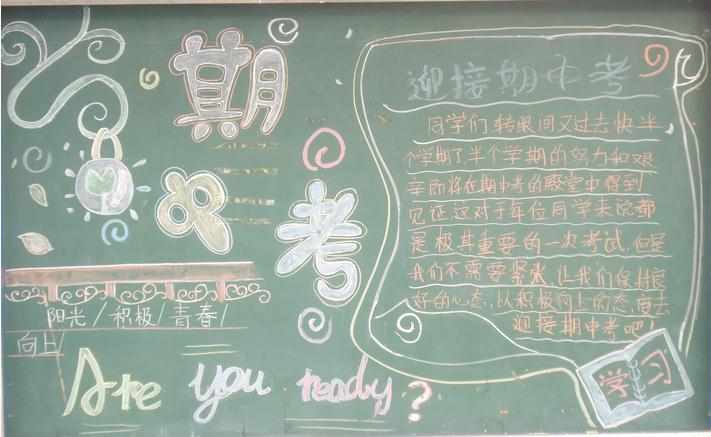 期中考
迎接期中考
同学们转眼间又过去快半
个学期了半个学期的努力和艰
辛即将在期中考的殿堂中得到
见证这对于每位同学来说都
是极其重要的一次考试,但是
我们不需要紧张,让我们保持良
好的心态,以积极向上的态度去
迎接期中考吧!
阳光/积极/青春/
向上/
Are you ready?
学习